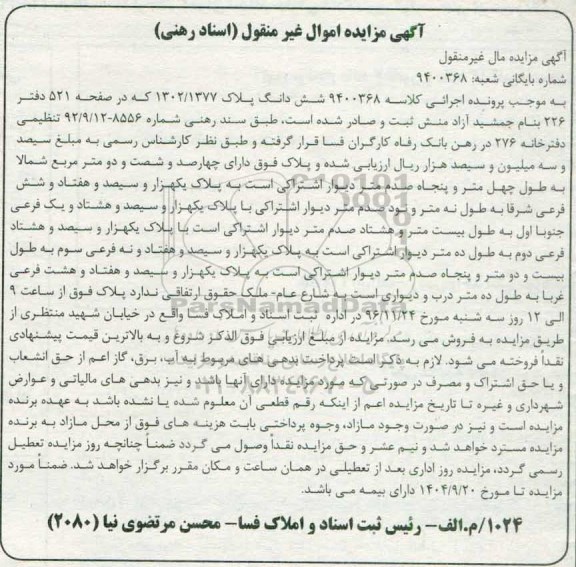 آگهی مزایده اموال غیر منقول (اسناد رهنی)
آگهی مزایده مال غیرمنقول
شماره بایگانی شعبه: ۹۴۰۰۳۶۸
به موجب پرونده اجرائی کلاسه ۹۴۰۰۳۶۸ شش دانگ پلاک ۱۳۰۲/۱۳۷۷ که در صفحه ۵۲۱ دفتر
۲۲۶ بنام جمشید آزاد منش ثبت و صادر شده است، طبق سند رهنی شماره ۸۵۵۶-۹۲/۹/۱۲ تنظیمی
دفترخانه ۲۷۶ در رهن بانک رفاه کارگران فسا قرار گرفته و طبق نظر کارشناس رسمی به مبلغ سیصد
و سه میلیون و سیصد هزار ریال ارزیابی شده و پلاک فوق دارای چهارصد و شصت و دو متر مربع شمالا
به طول چهل متر و پنجاه صدم متر دیوار اشتراکی است به پلاک یکهزار و سیصد و هفتاد و شش
فرعی شرقا به طول نه متر و نود صدم متر دیوار اشتراکی با پلاک یکهزار و سیصد و هشتاد و یک فرعی
جنوبا اول به طول بیست متر و هشتاد صدم متر دیوار اشتراکی است با پلاک یکهزار و سیصد و هشتاد
فرعی دوم به طول ده متر دیوار اشتراکی است به پلاک یکهزار و سیصد و هفتاد و نه فرعی سوم به طول
بیست و دو متر و پنجاه صدم متر دیوار اشتراکی است به پلاک یکهزار و سیصد و هفتاد و هشت فرعی
غربا به طول ده متر درب و دیواری است به شارع عام- ملک حقوق ارتفاقی ندارد پلاک فوق از ساعت ۹
الی ۱۲ روز سه شنبه مورخ ۹۶/۱۱/۲۴ در اداره ثبت اسناد و املاک فسا واقع در خیابان شهید منتظری از
طریق مزایده به فروش می رسد. مزایده از مبلغ ارزیابی فوق الذکر شروع و به بالاترین قیمت پیشنهادی
نقداً فروخته می شود. لازم به ذکر است پرداخت بدهی های مربوط به آب، برق، گاز اعم از حق انشعاب
و یا حق اشتراک و مصرف در صورتی که مورد مزایده دارای آنها باشد و نیز بدهی های مالیاتی و عوارض
شهرداری و غیره تا تاریخ مزایده اعم از اینکه رقم قطعی آن معلوم شده یا نشده باشد به عهده برنده
مزایده است و نیز در صورت وجود مازاد، وجوه پرداختی بابت هزینه های فوق از محل مازاد به برنده
مزایده مسترد خواهد شد و نیم عشر و حق مزایده نقداً وصول می گردد ضمناً چنانچه روز مزایده تعطیل
رسمی گردد، مزایده روز اداری بعد از تعطیلی در همان ساعت و مکان مقرر برگزار خواهد شد. ضمناً مورد
مزایده تا مورخ ۱۴۰۴/۹/۲۰ دارای بیمه می باشد.
۱۰۲۴/م.الف- رئیس ثبت اسناد و املاک فسا- محسن مرتضوی نیا (۲۰۸۰)
ParsNamadData